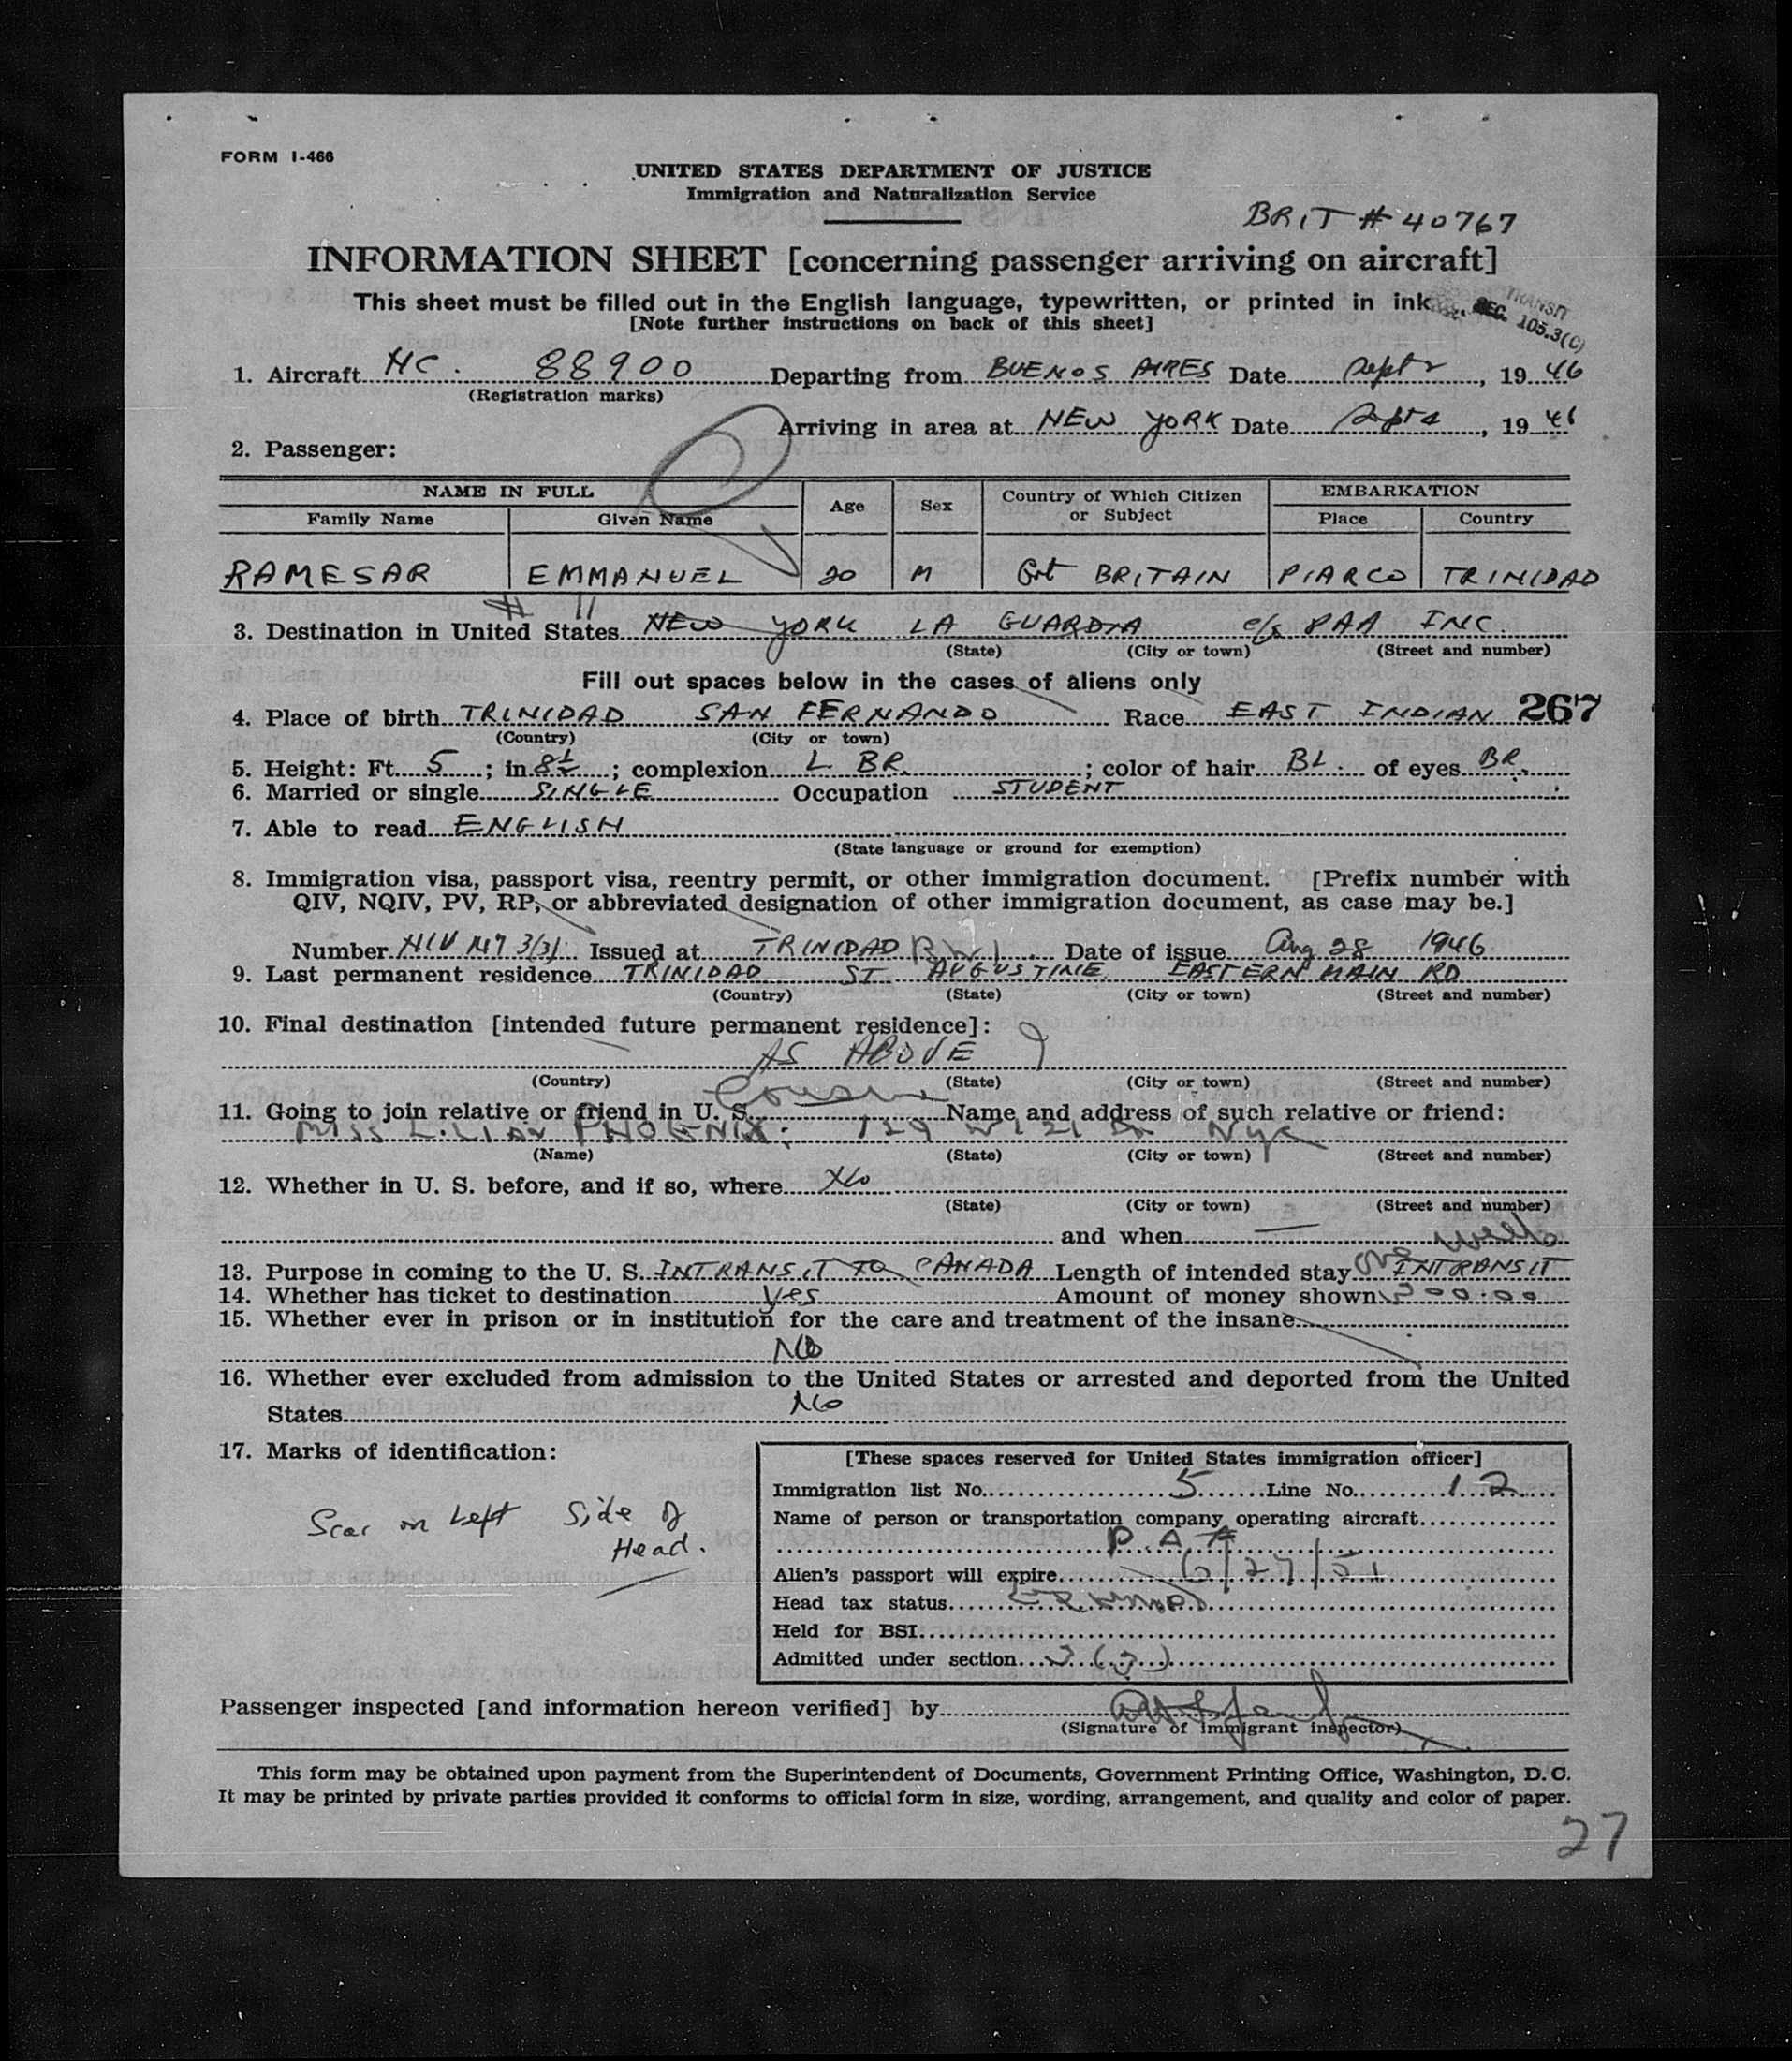 FORM I-466
UNITED STATES DEPARTMENT OF JUSTICE
Immigration and Naturalization Service
BRIT # 40767
INFORMATION SHEET [concerning passenger arriving on aircraft]
This sheet must be filled out in the English language, typewritten, or printed in ink.
[Note further instructions on back of this sheet]
TRANSIT
SEC. 105.3(C)
1. Aircraft NC. 88900 Departing from BUENOS AIRES Date Sept 2, 1946
(Registration marks)
Arriving in area at NEW YORK Date Sept 4, 1946
2. Passenger:
NAME IN FULL Age Sex Country of Which Citizen or Subject EMBARKATION
Family Name Given Name Place Country
RAMESAR EMMANUEL 20 M Grt BRITAIN PIARCO TRINIDAD
3. Destination in United States NEW YORK LA GUARDIA c/o PAA INC.
(State) (City or town) (Street and number)
Fill out spaces below in the cases of aliens only
4. Place of birth TRINIDAD SAN FERNANDO Race EAST INDIAN 267
(Country) (City or town)
5. Height: Ft. 5; in 8½; complexion L BR.; color of hair BL. of eyes BR.
6. Married or single SINGLE Occupation STUDENT
7. Able to read ENGLISH
(State language or ground for exemption)
8. Immigration visa, passport visa, reentry permit, or other immigration document. [Prefix number with
QIV, NQIV, PV, RP, or abbreviated designation of other immigration document, as case may be.]
Number NIV 147 3(3) Issued at TRINIDAD BWI Date of issue Aug 28 1946
9. Last permanent residence TRINIDAD ST AUGUSTINE EASTERN MAIN RD
(Country) (State) (City or town) (Street and number)
10. Final destination [intended future permanent residence]:
AS ABOVE
(Country) (State) (City or town) (Street and number)
11. Going to join relative or friend in U. S. Cousin Name and address of such relative or friend:
MISS LILIAN PHOENIX; 129 W 121 NYC
(Name) (State) (City or town) (Street and number)
12. Whether in U. S. before, and if so, where No
(State) (City or town) (Street and number)
and when —
13. Purpose in coming to the U. S. INTRANSIT TO CANADA Length of intended stay One week INTRANSIT
14. Whether has ticket to destination Yes Amount of money shown 200.00
15. Whether ever in prison or in institution for the care and treatment of the insane
No
16. Whether ever excluded from admission to the United States or arrested and deported from the United
States No
17. Marks of identification:
Scar on Left Side of
Head.
[These spaces reserved for United States immigration officer]
Immigration list No. 5 Line No. 12
Name of person or transportation company operating aircraft
P.A.A
Alien's passport will expire 6/27/51
Head tax status
Held for BSI
Admitted under section 3(3)
Passenger inspected [and information hereon verified] by
(Signature of immigrant inspector)
This form may be obtained upon payment from the Superintendent of Documents, Government Printing Office, Washington, D. C.
It may be printed by private parties provided it conforms to official form in size, wording, arrangement, and quality and color of paper.
27